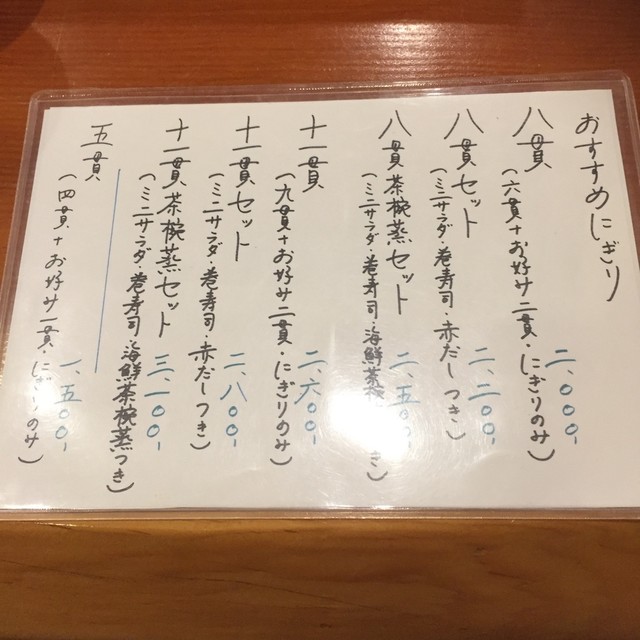 おすすめにぎり
八貫
二、〇〇〇-
(六貫+お好み二貫・にぎりのみ)
八貫セット
二、二〇〇-
(ミニサラダ・巻寿司・赤だしつき)
八貫茶椀蒸セット
二、五〇〇-
(ミニサラダ・巻寿司・海鮮茶椀 き)
十一貫
二、六〇〇-
(九貫+お好み二貫・にぎりのみ)
十一貫セット
二、八〇〇-
(ミニサラダ・巻寿司・赤だしつき)
十一貫茶椀蒸セット
三、一〇〇-
(ミニサラダ・巻寿司・海鮮茶椀蒸つき)
五貫
一、五〇〇-
(四貫+お好み一貫・にぎりのみ)